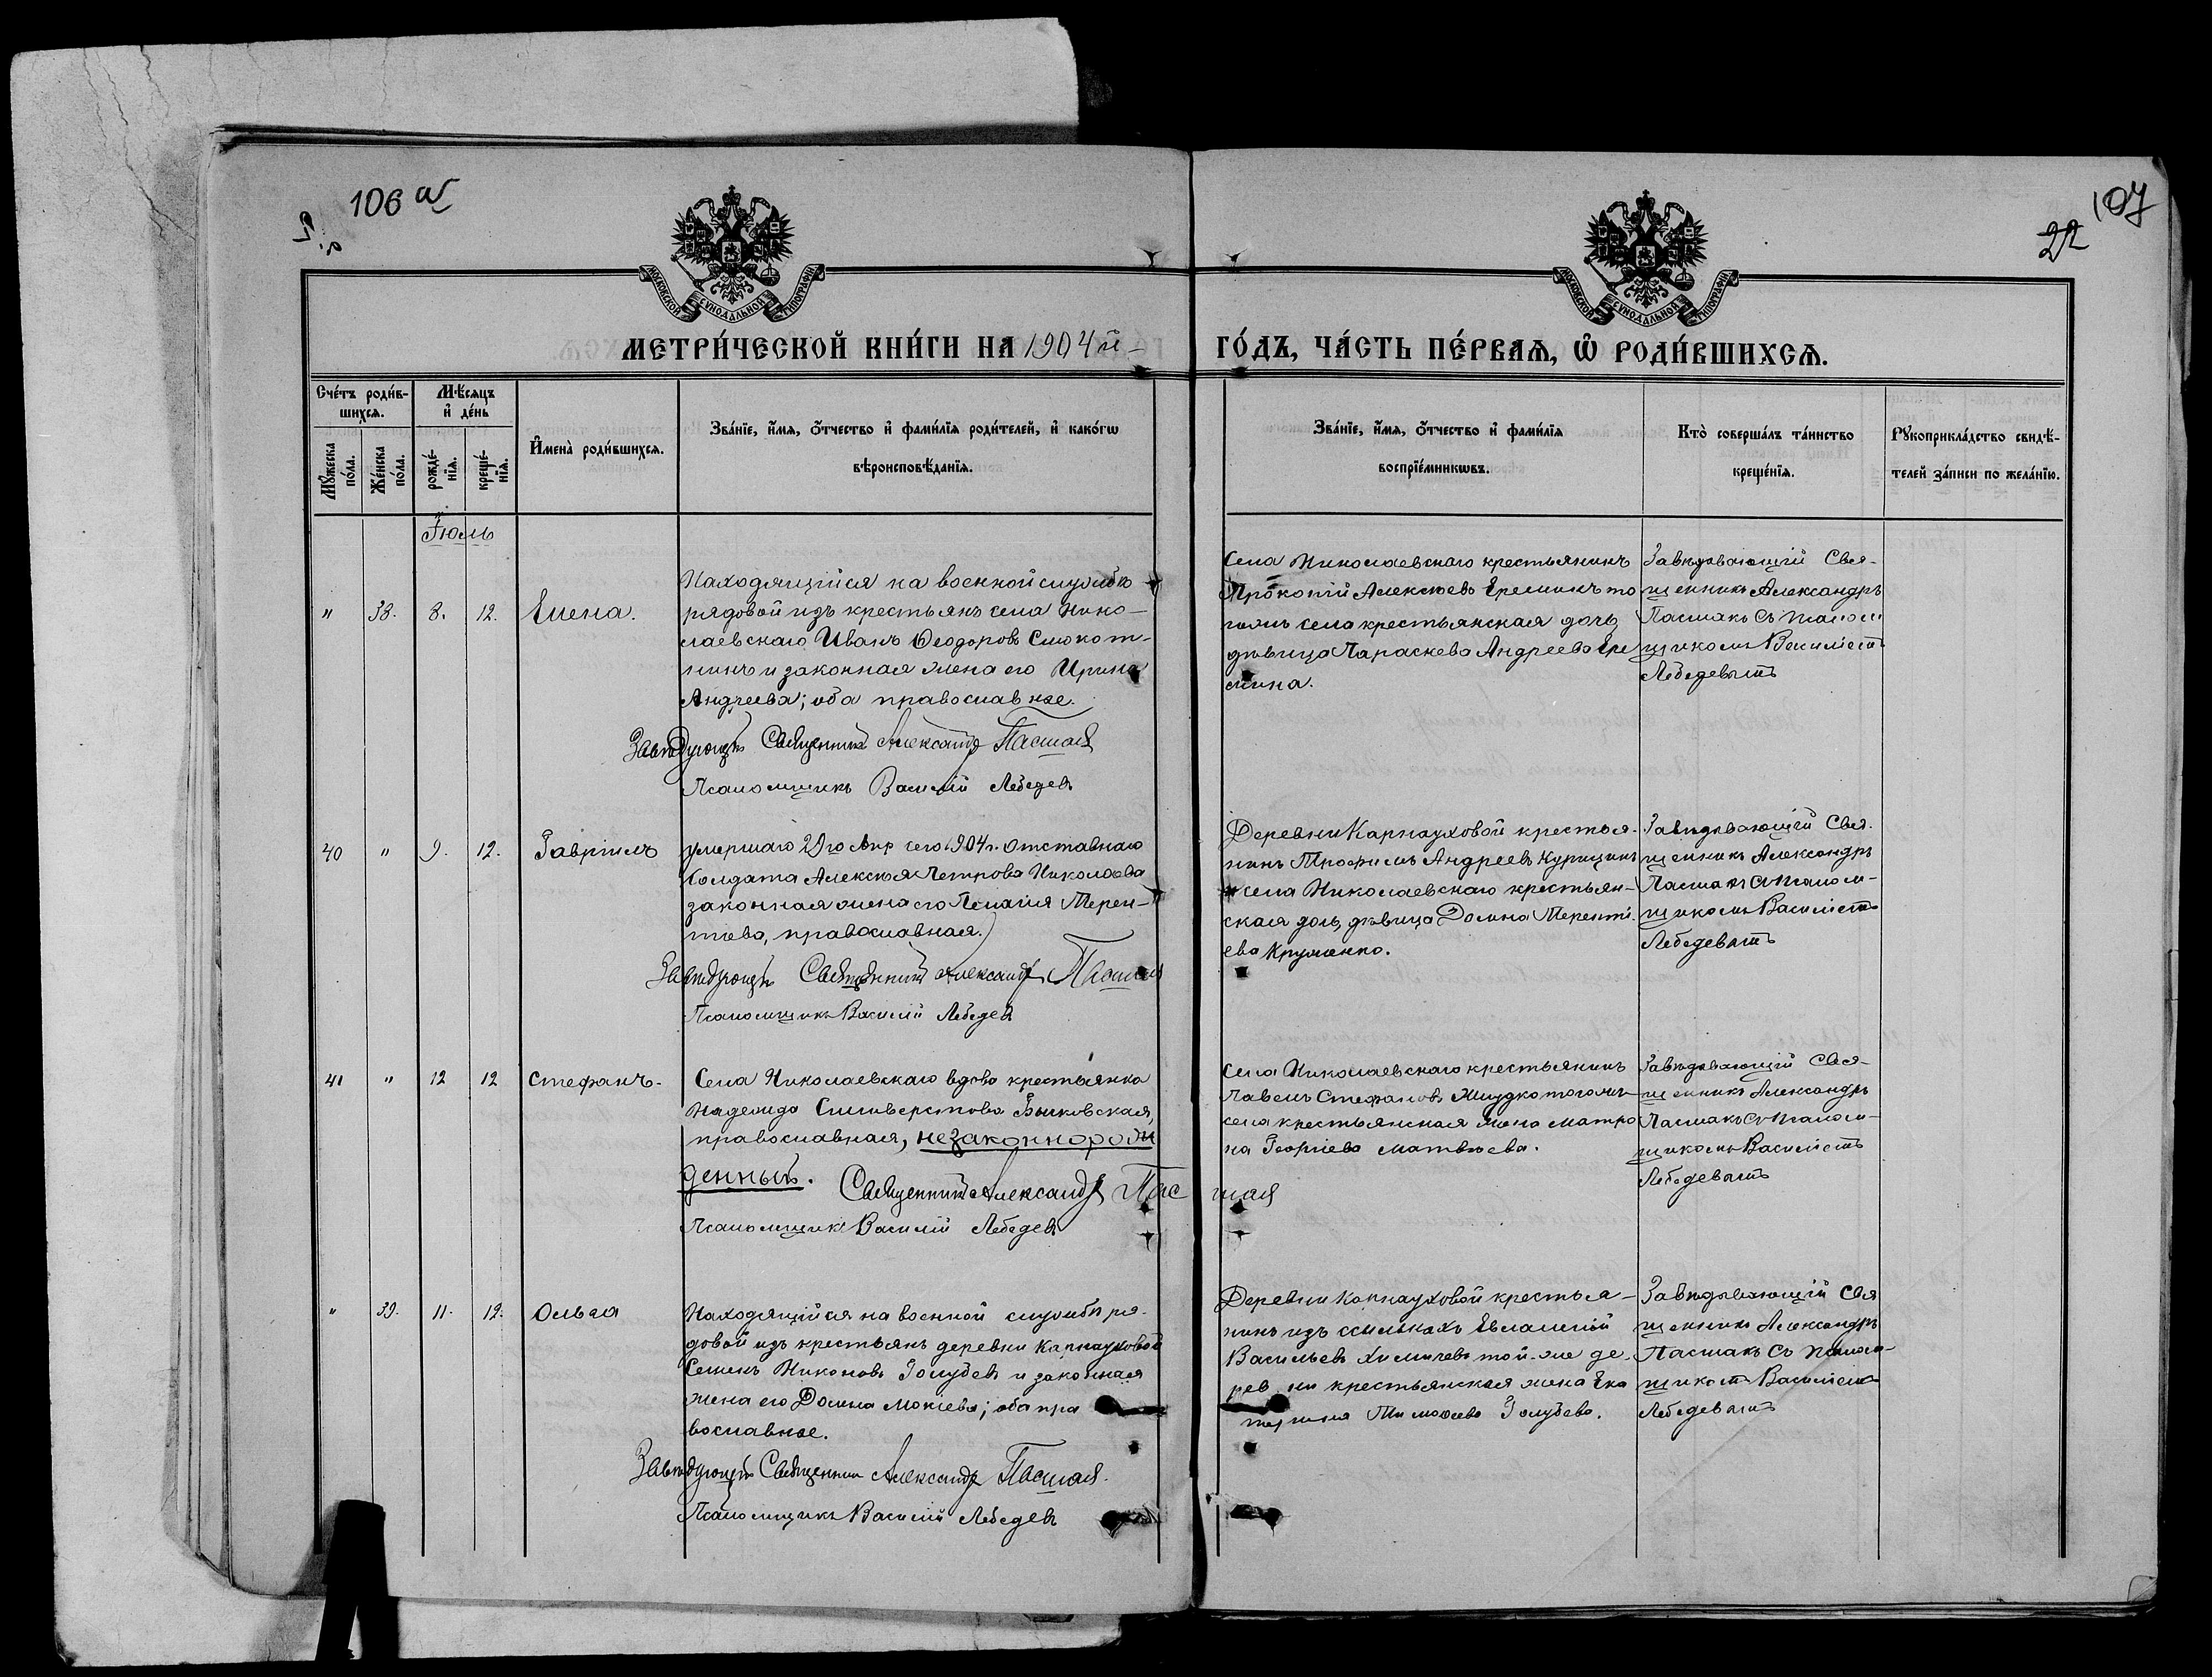 106 об
107
22
МОСКОВСКОЙ СѴНОДАЛЬНОЙ ТИПОГРАФІИ
МОСКОВСКОЙ СѴНОДАЛЬНОЙ ТИПОГРАФІИ
МЕТРИ́ЧЕСКОЙ КНИ́ГИ НА 1904й-
ГО́ДЪ, ЧА́СТЬ ПЕ́РВАѦ, Ѡ҆ РОДИ́ВШИХСѦ.
Сче́тъ роди́в-
шихсѧ.
Мꙋ́жеска по́ла.
Же́нска по́ла.
Мѣ́сѧцъ
и҆ де́нь
рожде́-нїѧ.
креще́-нїѧ.
И҆мена̀ роди́вшихсѧ.
Зва́нїе, и҆́мѧ, ѻ҆́тчество и҆ фами́лїѧ роди́телей, и҆ како́гѡ
вѣроисповѣ́данїѧ.
Зва́нїе, и҆́мѧ, ѻ҆́тчество и҆ фами́лїѧ
воспрїе́мникѡвъ.
Кто̀ соверша́лъ та́инство
креще́нїѧ.
Рꙋкоприкла́дство свидѣ́-
телей за́писи по жела́нїю.
Іюль
" 38. 8. 12. Елена.
Находящійся на военной службѣ
рядовой изъ крестьянъ села Нико-
лаевскаго Иванъ Ѳеодоровъ
и законная жена его Ирина
Андреева; оба православные.
Завѣдующій Священникъ Александръ Пасмакъ
Псаломщикъ Василій Лебедевъ
Села Николаевскаго крестьянинъ
Прокопій Алексѣевъ Ереминъ то
гожъ села крестьянская дочь
дѣвица Параскева Андреева Ере
мина.
Завѣдывающій Свя-
щенникъ Александръ
Пасмакъ съ псалом
щикомъ Василіемъ
Лебедевымъ
40 " 9. 12. Гавріилъ
умершаго 29го Апр. сего 1904 г. отставнаго
солдата Алексѣя Петрова Николаева
законная жена его Пелагія Терен-
тьева, православная.
Завѣдующій Священникъ Александръ Пасмакъ
Псаломщикъ Василій Лебедевъ
Деревни Карнауховой крестья-
нинъ Трофимъ Андреевъ Курицинъ
села Николаевскаго крестьян-
ская дочь, дѣвица Домна Теренті-
ева
Завѣдывающій Свя-
щенникъ Александръ
Пасмакъ съ псалом-
щикомъ Василіемъ
Лебедевымъ
41 " 12 12 Стефанъ-
Села Николаевскаго вдова крестьянка
Надежда Сильверстова Бычковская,
православная, незаконнорож
денный. Священникъ Александръ Пасмакъ
Псаломщикъ Василій Лебедевъ
Села Николаевскаго крестьянинъ
Павелъ Стефановъ тогожъ
села крестьянская жена Матро
на Георгіева Матвѣева.
Завѣдывающій Свя-
щенникъ Александръ
Пасмакъ съ псалом-
щикомъ Василіемъ
Лебедевымъ
" 39. 11. 12. Ольга
Находящійся на военной службѣ ря-
довой изъ крестьянъ деревни Карнауховой
Семенъ Никоновъ Голубевъ и законная
жена его Домна Мокіева; оба пра
вославные.
Завѣдующій Священникъ Александръ Пасмакъ.
Псаломщикъ Василій Лебедевъ
Деревни Карнауховой крестья-
нинъ изъ ссыльныхъ Евлампій
Васильевъ той-же де-
ревни крестьянская жена Ека
терина Тимоѳеева Голубева.
Завѣдывающій Свя
щенникъ Александръ
Пасмакъ съ псалом-
щикомъ Василіемъ
Лебедевымъ